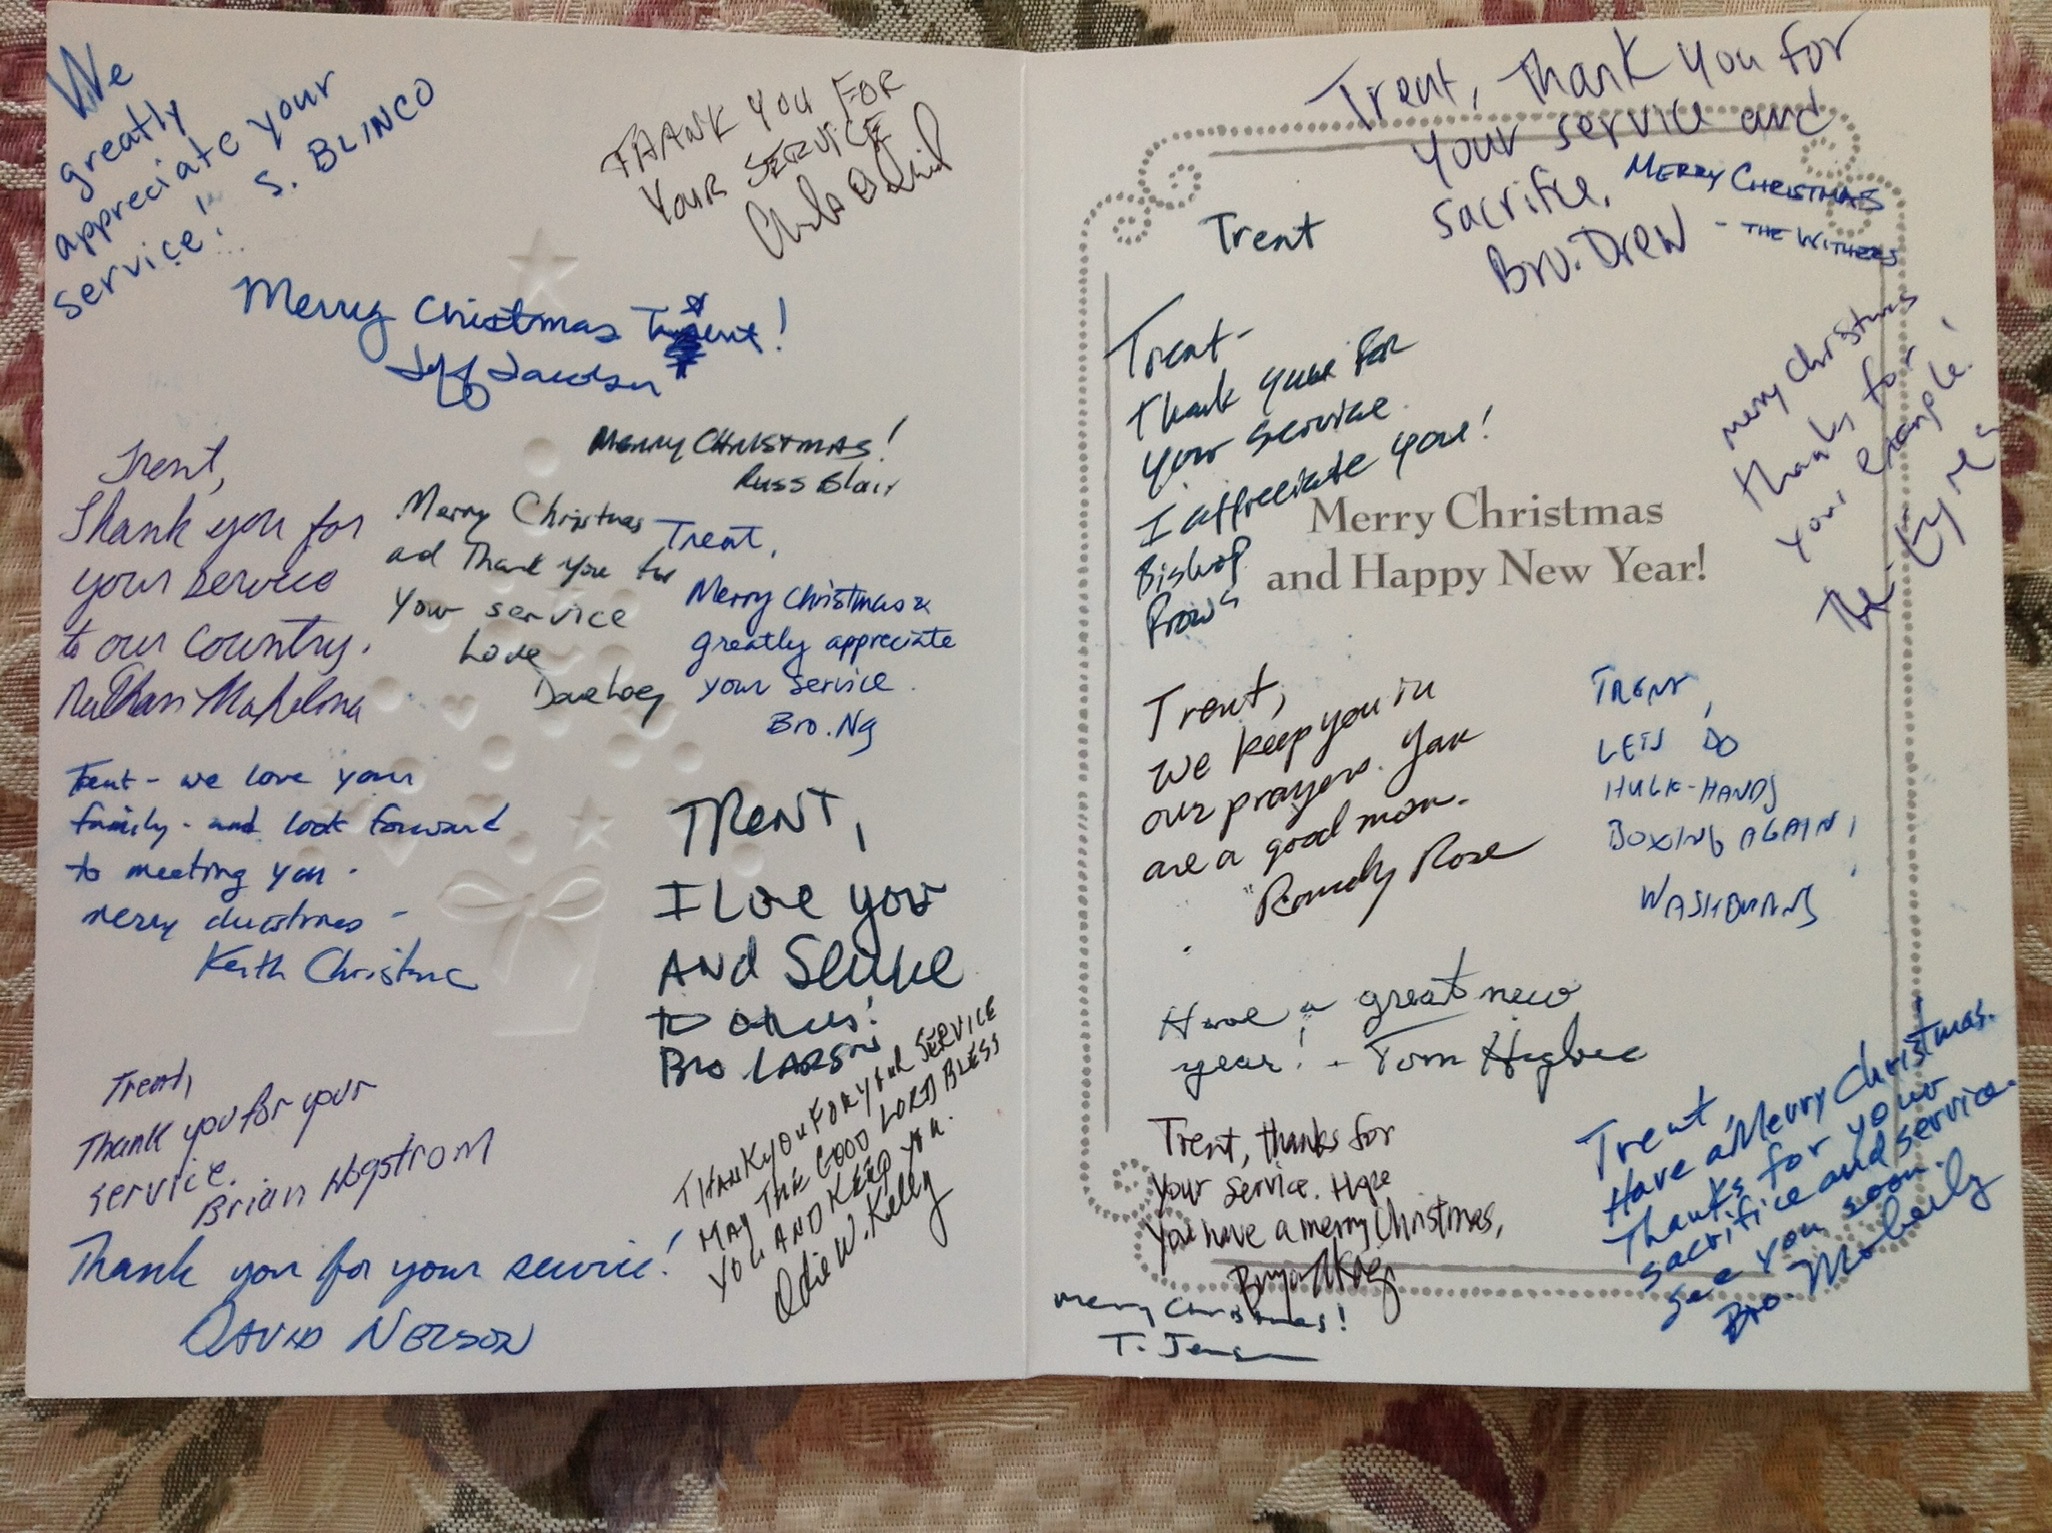 We
greatly
appreciate your
service!
S. BLINCO
THANK YOU FOR
YOUR SERVICE
Merry Christmas Trent!
Jeff Jacobson
Merry CHRISTMAS!
Russ Blair
Trent,
Thank you for
your service
to our country.
Nathan Makelona
Merry Christmas
ad Thank you for
your service
Love
Dave Loey
Trent,
Merry Christmas &
greatly appreciate
your service.
Bro. Ng
Trent - we love your
family - and look forward
to meeting you.
merry christmas -
Keith Christensen
TRENT,
I Love you
AND Service
to others!
Bro LARSON
Trent,
Thank you for your
service.
Brian Hogstrom
THANK YOU FOR YOUR SERVICE
MAY THE GOOD LORD BLESS
YOU AND KEEP YOU.
Odie W. Kelly
Thank you for your service!
DAVID NELSON
Trent, Thank you for
your service and
sacrifice.
Bro. Drew
MERRY CHRISTMAS
- THE WITHERS
Trent
Trent-
Thank you for
your service.
I appreciate you!
Bishop
Prows
merry christmas
thanks for
your example!
The
Merry Christmas
and Happy New Year!
Trent,
we keep you in
our prayers. You
are a good man.
Randy Rose
TRENT,
LETS DO
HULK-HANDS
BOXING AGAIN,
WASHBURNS
Have a great new
year! - Tom Higbee
Trent, thanks for
your service. Hope
you have a merry Christmas,
Merry Christmas!
T. Jensen
Trent,
Have a Merry Christmas.
Thanks for your
sacrifice and service.
See you soon.
Bro. Moberly